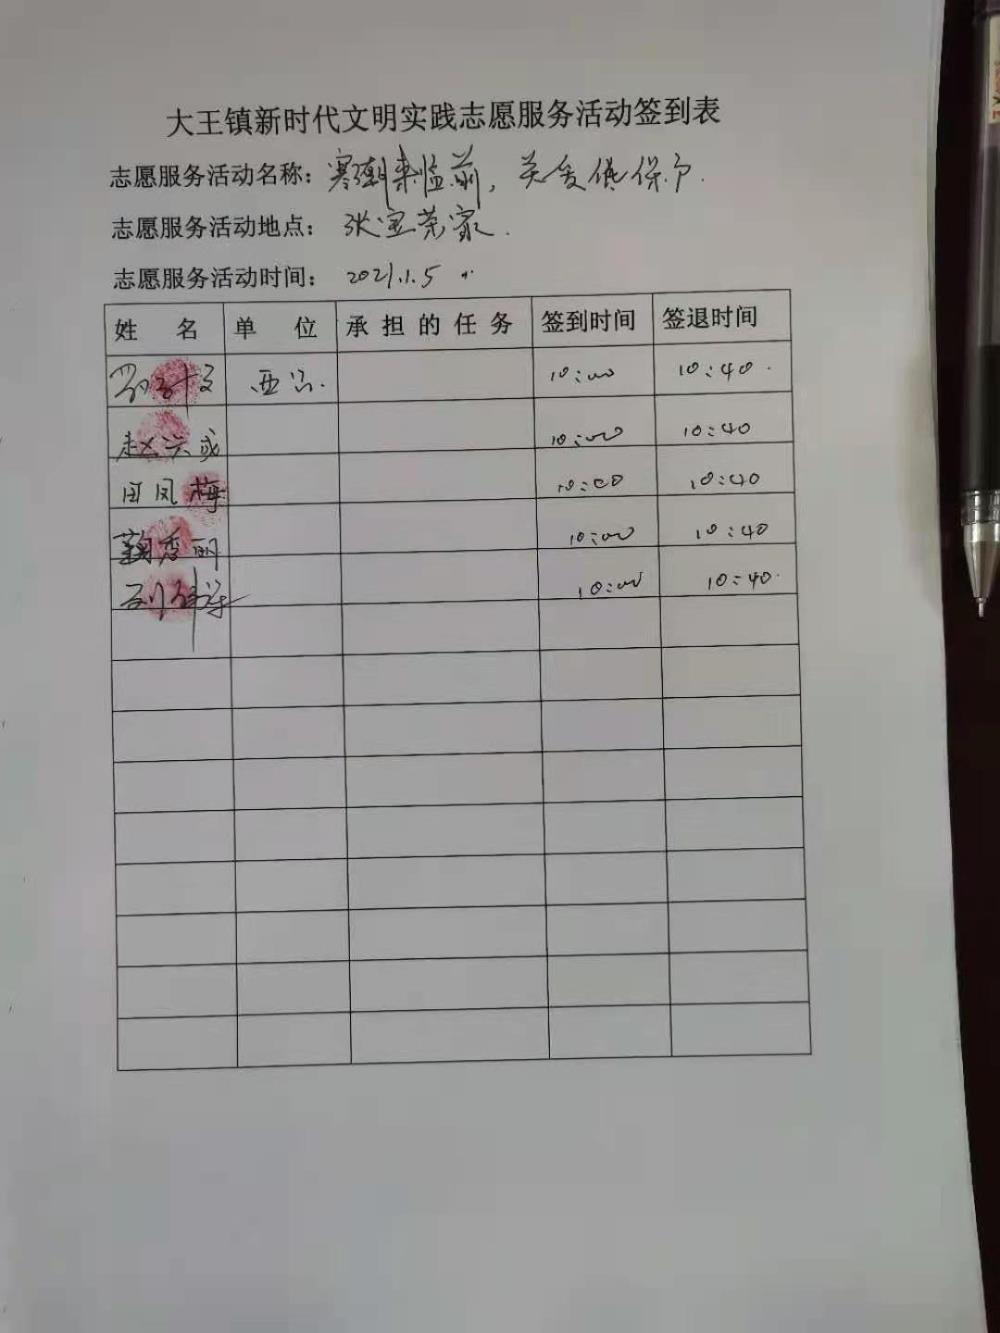 大王镇新时代文明实践志愿服务活动签到表
志愿服务活动名称：寒潮来临前，关爱低保户.
志愿服务活动地点：张宝荣家.
志愿服务活动时间：2021.1.5
姓 名 单 位 承担的任务 签到时间 签退时间
10:00 10:40
赵兴成 10:00 10:40
田凤梅 10:00 10:40
鞠秀丽 10:00 10:40
10:00 10:40